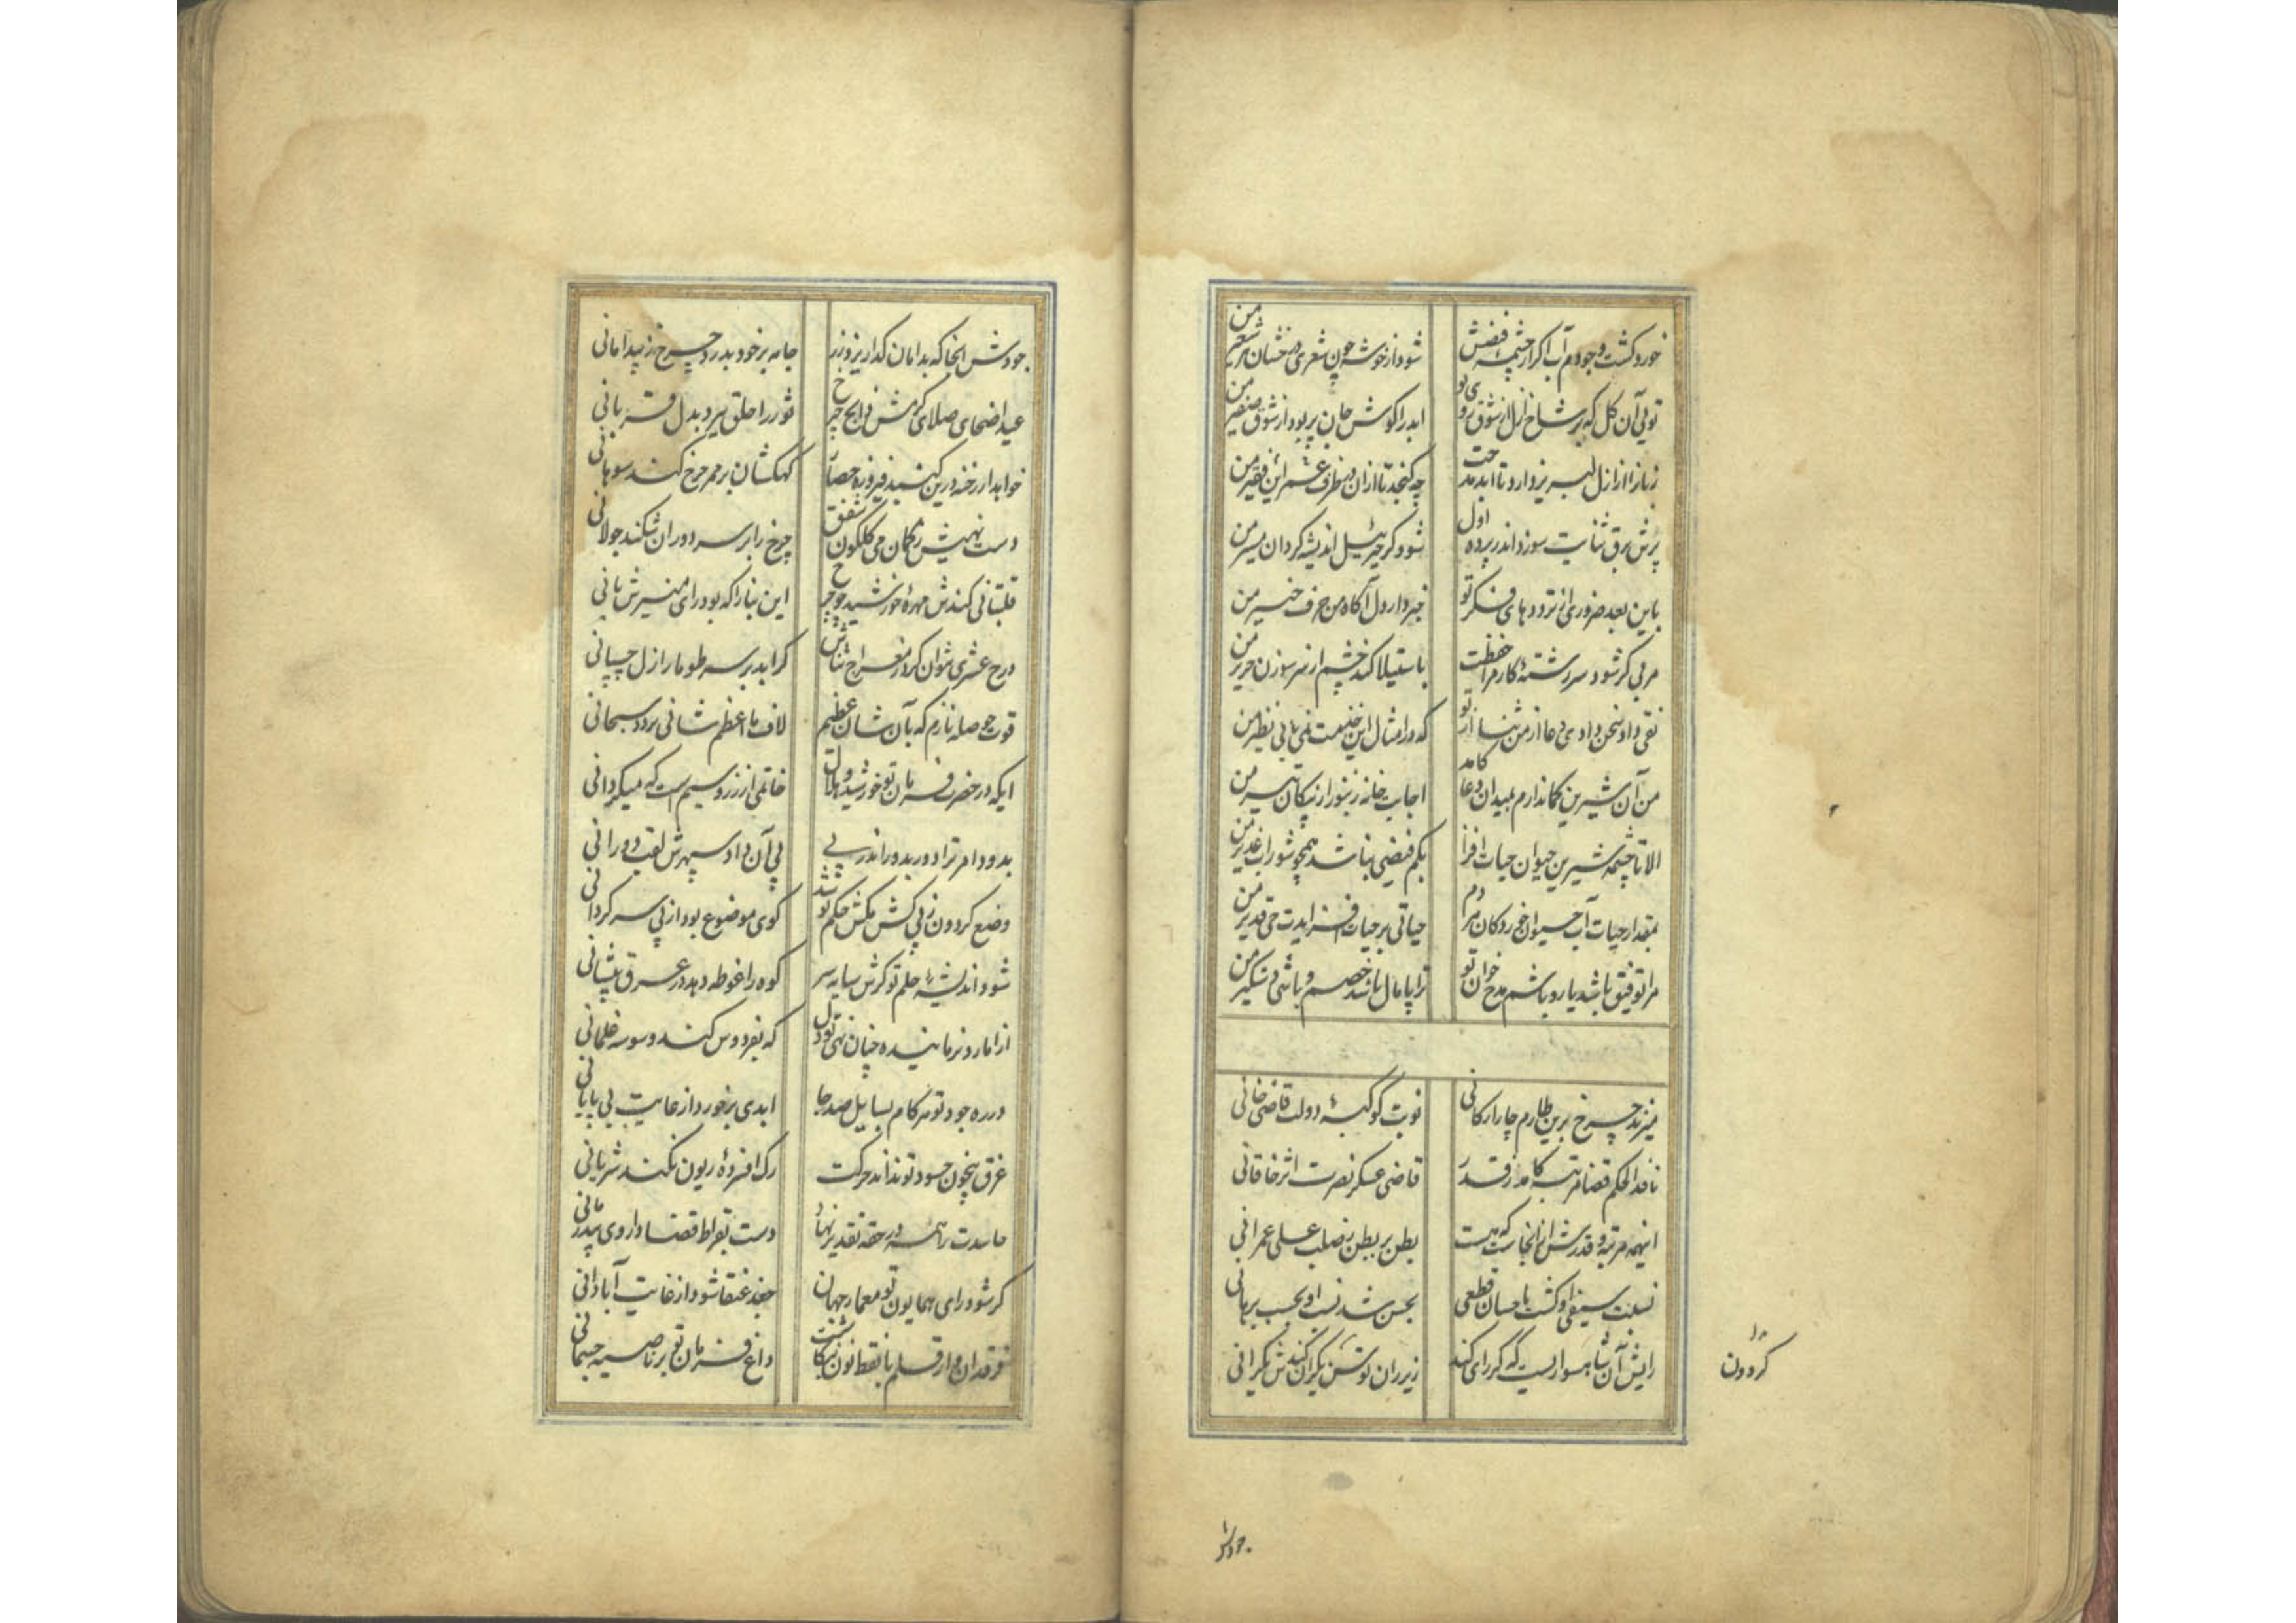 خورد کشت وجودم آب اگر از چشمه فیضش
شود از خوشه چون شعری درخشان هر شعیر من
تویی آن گل که بر شاخ ازل از شوق روی تو
ابد را گوش جان پر بود از شوق صفیر من
زبانرا از ازل لبریز دارد تا ابد مدحت
چه گنجد تا ازان در ظرف عمر این فقیر من
پرش برق ثنایت سوزد اندر پرده اول
شود گر جبرئیل اندیشه گردان مسیر من
باین بعد ضروری از ترددهای فکر تو
خبر دارد دل آگاه من حرف خبیر من
مربی گر شود سررشته کار مرا حفظت
باستیلا کند خشم از سر سوزن حریر من
تقی داد سخن دادی دعا از من ثنا از تو
که در امثال این خدمت نمی یابی نظیر من
من آن شیرین کماندارم بمیدان دعا کامد
اجابت خانه زنبور از پیکان تیر من
الا تا چشمه شیرین حیوان حیات افزا
بکم فیضی نباشد همچو شوراب غدیر من
بمقدار حیات آب حیوان خوردگان هر دم
حیاتی بر حیات افزایدت حی قدیر من
مرا توفیق باشد یار و باشم مدح خوان تو
ترا پامال باشد خصم و باشی دستگیر من
میزند چرخ برین طارم چار ارکانی
نوبت کوکبه دولت قاضی خانی
نافذ الحکم قضا مرتبه کامد ز قدر
قاضی عسکر نصرت اثر خاقانی
اینهمه مرتبه و قدرش از آنجاست که هست
بطن بر بطن ز صلب علی عمرانی
نسبت سیفی او گشت باحسان قطعی
بحسن شد نسب او بحسب برهانی
رایش آن شاهسواریست که گر رای کند
زیر ران توسن یکران کندش یکرانی
گردون
جودش
جودش آنجا که بدامان گدا ریزد زر
جامه بر خود بدرد چرخ ز بیدامانی
عید اضحای صلای کرمش ذابح چرخ
ثور را حلق برد بدل قربانی
خواهد ار رخنه درین گنبد فیروزه حصار
کهکشان بر ممر چرخ کند سوهانی
دست نهیش ز کمان می گلگون شفق
چرخ را بر سر دوران شکند جولانی
قلتبانی کندش مهره خورشید چو چرخ
این بنا را که بود رای منیرش بانی
درج عشری نتوان کرد ز معراج ثناش
گر ابد بر سر طومار ازل چسپانی
قوت حوصله نازم که بآن شان عظیم
لاف ما اعظم شانی نزد سبحانی
ایکه در خنصر فرمان تو خورشید و هلال
خاتمی از زر و سیم است که میگردانی
بدود امر ترا دور بدور اندر پی
پی آن داد سپهرش لقب دورانی
وضع گردون ز پی کش مکش حکم تو شد
گوی موضوع بود از پی سرگردانی
شود اندیشه حلم تو گرش سایه سر
کوه را غوطه دهد در عرق پیشانی
از امارد نرماننده چنان نهی تو دل
که بفردوس کند وسوسه غلمانی
در ره جود تو هر گام بسایل صد جا
ابدی برخورد از غایت بی پایانی
عرق همچون حسود تو نداند حرکت
رگ افسرده ریون نکند شریانی
حاسدت را همه در حقه تقدیر نهاد
دست بقراط قضا داروی بیدرمانی
گر شود رای همایون تو معمار جهان
جغد عنقا شود از غایت آبادانی
فرقدان وار قلم با نقط نون نگاشت
داغ فرمان تو بر ناصیه جسمانی